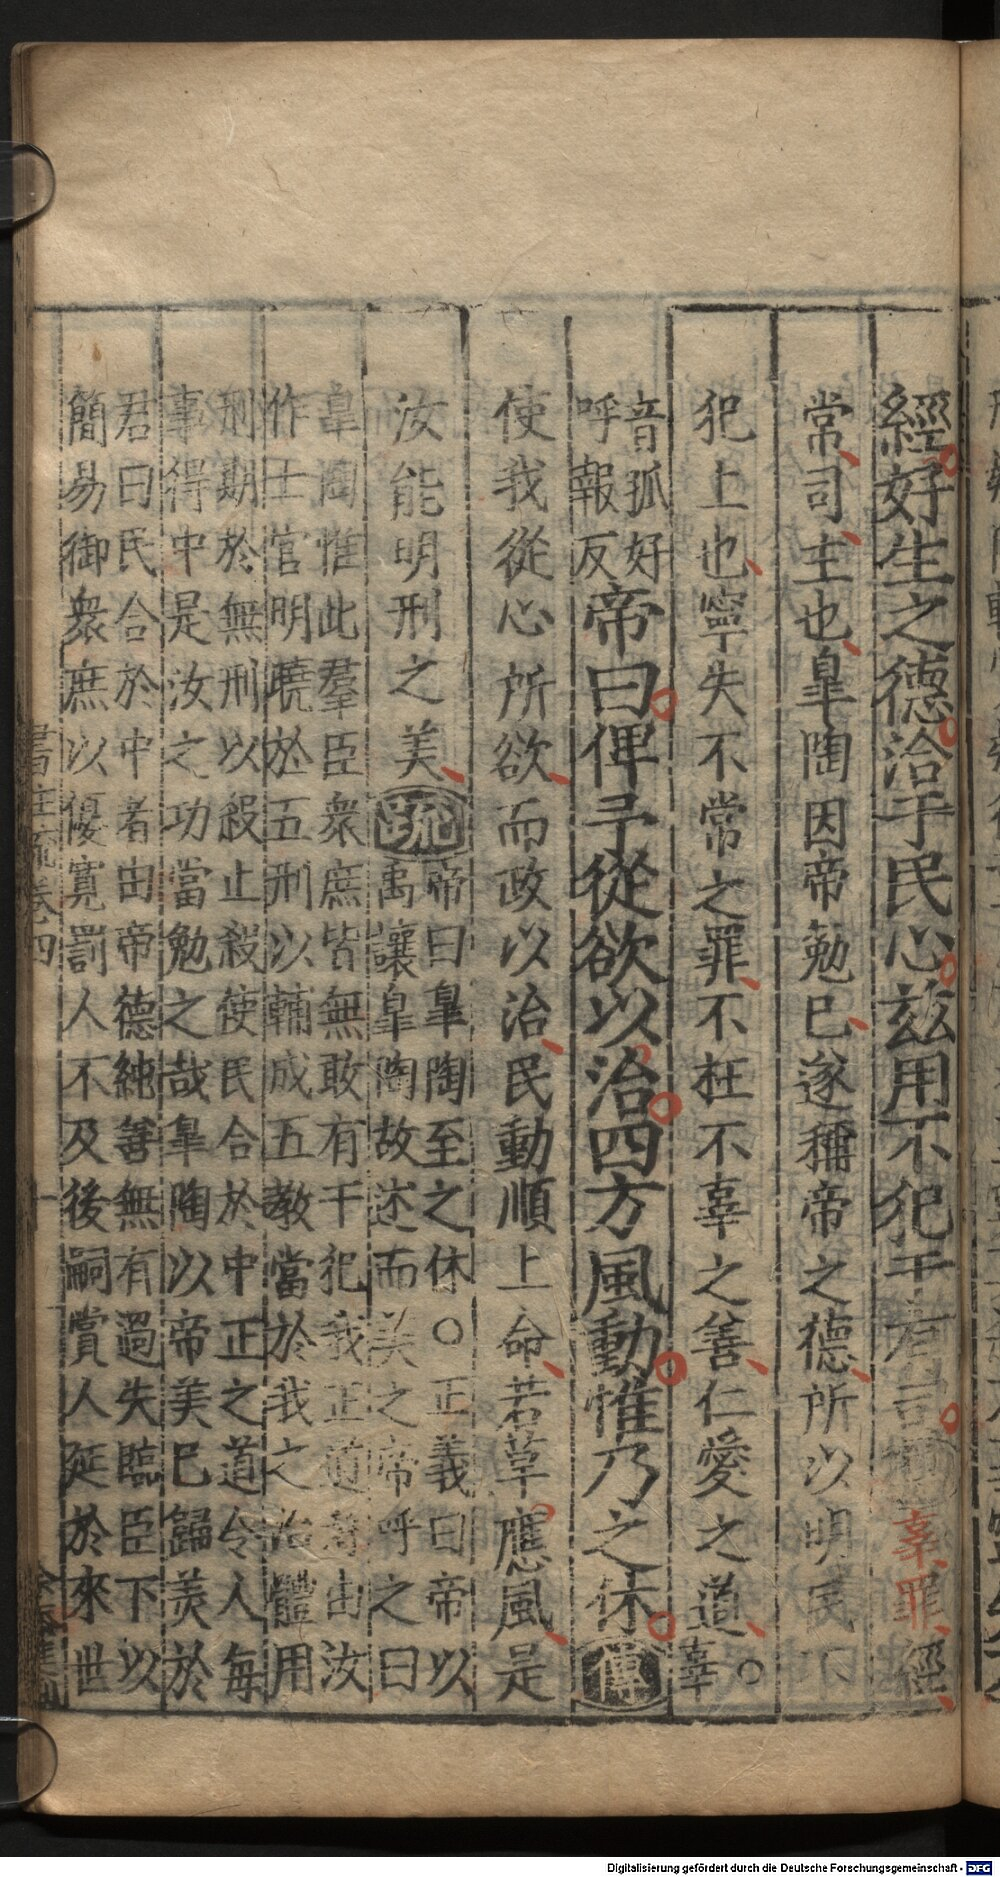 經好生之德洽于民心茲用不犯于有司傳辜罪經
常司主也皐陶因帝勉已遂稱帝之德所以明民不
犯上也寧失不常之罪不枉不辜之善仁愛之道○辜
音孤好
呼報反
帝曰俾予從欲以治四方風動惟乃之休傳
使我從心所欲而政以治民動順上命若草應風是
汝能明刑之美疏
帝曰皐陶至之休○正義曰帝以
禹讓皐陶故述而美之帝呼之曰
皐陶惟此羣臣衆庶皆無敢有干犯我正道者由汝
作士官明曉於五刑以輔成五教當於我之治體用
刑期於無刑以殺止殺使民合於中正之道令人每
事得中是汝之功當勉之哉皐陶以帝美已歸美於
君曰民合於中者由帝德純善無有過失臨臣下以
簡易御衆庶以優寬罰人不及後嗣賞人延於來世
書注疏卷四
十
Digitalisierung gefördert durch die Deutsche Forschungsgemeinschaft - DFG